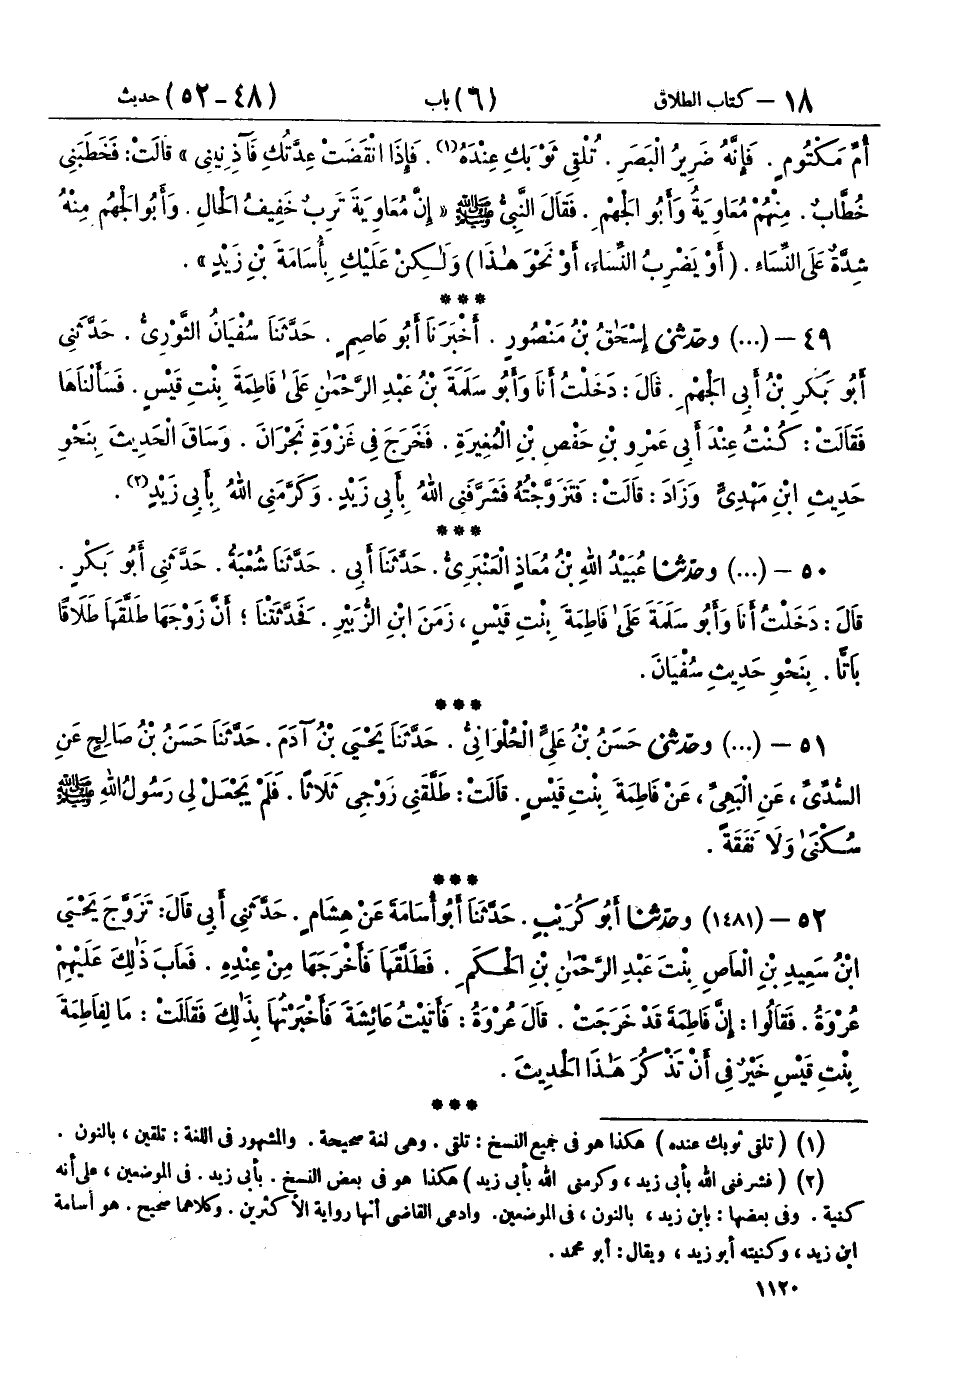 ١٨ – كتاب الطلاق (٦) باب (٤٨ – ٥٢) حديث
أُمِّ مَكْتُومٍ . فَإِنَّهُ ضَرِيرُ الْبَصَرِ . تُلْقِي ثَوْبَكِ عِنْدَهُ(١) . فَإِذَا انْقَضَتْ عِدَّتُكِ فَآذِنِينِي » قَالَتْ: فَخَطَبَنِي
خُطَّابٌ . مِنْهُمْ مُعَاوِيَةُ وَأَبُو الْجَهْمِ . فَقَالَ النَّبِيُّ ﷺ « إِنَّ مُعَاوِيَةَ تَرِبٌ خَفِيفُ الْحَالِ . وَأَبُو الْجَهْمِ مِنْهُ
شِدَّةٌ عَلَى النِّسَاءِ . ( أَوْ يَضْرِبُ النِّسَاءَ، أَوْ نَحْوَ هٰذَا ) وَلٰكِنْ عَلَيْكِ بِأُسَامَةَ بْنِ زَيْدٍ » .
***
٤٩ – (...) وحدثني إِسْحَاقُ بْنُ مَنْصُورٍ . أَخْبَرَنَا أَبُو عَاصِمٍ . حَدَّثَنَا سُفْيَانُ الثَّوْرِيُّ . حَدَّثَنِي
أَبُو بَكْرِ بْنُ أَبِي الْجَهْمِ . قَالَ : دَخَلْتُ أَنَا وَأَبُو سَلَمَةَ بْنُ عَبْدِ الرَّحْمٰنِ عَلَىٰ فَاطِمَةَ بِنْتِ قَيْسٍ . فَسَأَلْنَاهَا
فَقَالَتْ : كُنْتُ عِنْدَ أَبِي عَمْرِو بْنِ حَفْصِ بْنِ الْمُغِيرَةِ . فَخَرَجَ فِي غَزْوَةِ نَجْرَانَ . وَسَاقَ الْحَدِيثَ بِنَحْوِ
حَدِيثِ ابْنِ مَهْدِيٍّ وَزَادَ : قَالَتْ: فَتَزَوَّجْتُهُ فَشَرَّفَنِي اللهُ بِأَبِي زَيْدٍ . وَكَرَّمَنِي اللهُ بِأَبِي زَيْدٍ(٢) .
***
٥٠ – (...) وحدثنا عُبَيْدُ اللهِ بْنُ مُعَاذٍ الْعَنْبَرِيُّ . حَدَّثَنَا أَبِي . حَدَّثَنَا شُعْبَةُ . حَدَّثَنِي أَبُو بَكْرٍ .
قَالَ : دَخَلْتُ أَنَا وَأَبُو سَلَمَةَ عَلَىٰ فَاطِمَةَ بِنْتِ قَيْسٍ ، زَمَنَ ابْنِ الزُّبَيْرِ . فَحَدَّثَتْنَا ؛ أَنَّ زَوْجَهَا طَلَّقَهَا طَلَاقًا
بَاتًّا . بِنَحْوِ حَدِيثِ سُفْيَانَ .
***
٥١ – (...) وحدثني حَسَنُ بْنُ عَلِيٍّ الْحُلْوَانِيُّ . حَدَّثَنَا يَحْيَى بْنُ آدَمَ . حَدَّثَنَا حَسَنُ بْنُ صَالِحٍ عَنِ
السُّدِّيِّ ، عَنِ الْبَهِيِّ ، عَنْ فَاطِمَةَ بِنْتِ قَيْسٍ . قَالَتْ : طَلَّقَنِي زَوْجِي ثَلَاثًا . فَلَمْ يَجْعَلْ لِي رَسُولُ اللهِ ﷺ
سُكْنَىٰ وَلَا نَفَقَةً .
***
٥٢ – (١٤٨١) وحدثنا أَبُو كُرَيْبٍ . حَدَّثَنَا أَبُو أُسَامَةَ عَنْ هِشَامٍ . حَدَّثَنِي أَبِي قَالَ: تَزَوَّجَ يَحْيَى
ابْنُ سَعِيدِ بْنِ الْعَاصِ بِنْتَ عَبْدِ الرَّحْمٰنِ بْنِ الْحَكَمِ . فَطَلَّقَهَا فَأَخْرَجَهَا مِنْ عِنْدِهِ . فَعَابَ ذٰلِكَ عَلَيْهِمْ
عُرْوَةُ . فَقَالُوا : إِنَّ فَاطِمَةَ قَدْ خَرَجَتْ . قَالَ عُرْوَةُ : فَأَتَيْتُ عَائِشَةَ فَأَخْبَرْتُهَا بِذٰلِكَ فَقَالَتْ : مَا لِفَاطِمَةَ
بِنْتِ قَيْسٍ خَيْرٌ فِي أَنْ تَذْكُرَ هٰذَا الْحَدِيثَ .
***
(١) ( تلقي ثوبك عنده ) هكذا هو في جميع النسخ : تلقي . وهي لغة صحيحة . والمشهور في اللغة : تلقين ، بالنون .
(٢) ( فشرفني الله بأبي زيد ، وكرمني الله بأبي زيد ) هكذا هو في بعض النسخ . بأبي زيد . في الموضعين ، على أنه
كنية . وفي بعضها : بابن زيد ، بالنون ، في الموضعين. وادعى القاضي أنها رواية الأكثرين . وكلاهما صحيح . هو أسامة
ابن زيد ، وكنيته أبو زيد ، ويقال : أبو محمد .
١١٢٠